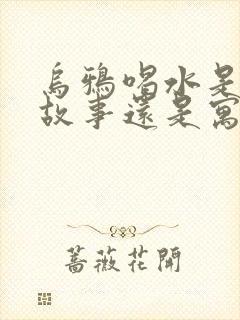 烏鴉喝水是
故事還是寓
薔薇花開